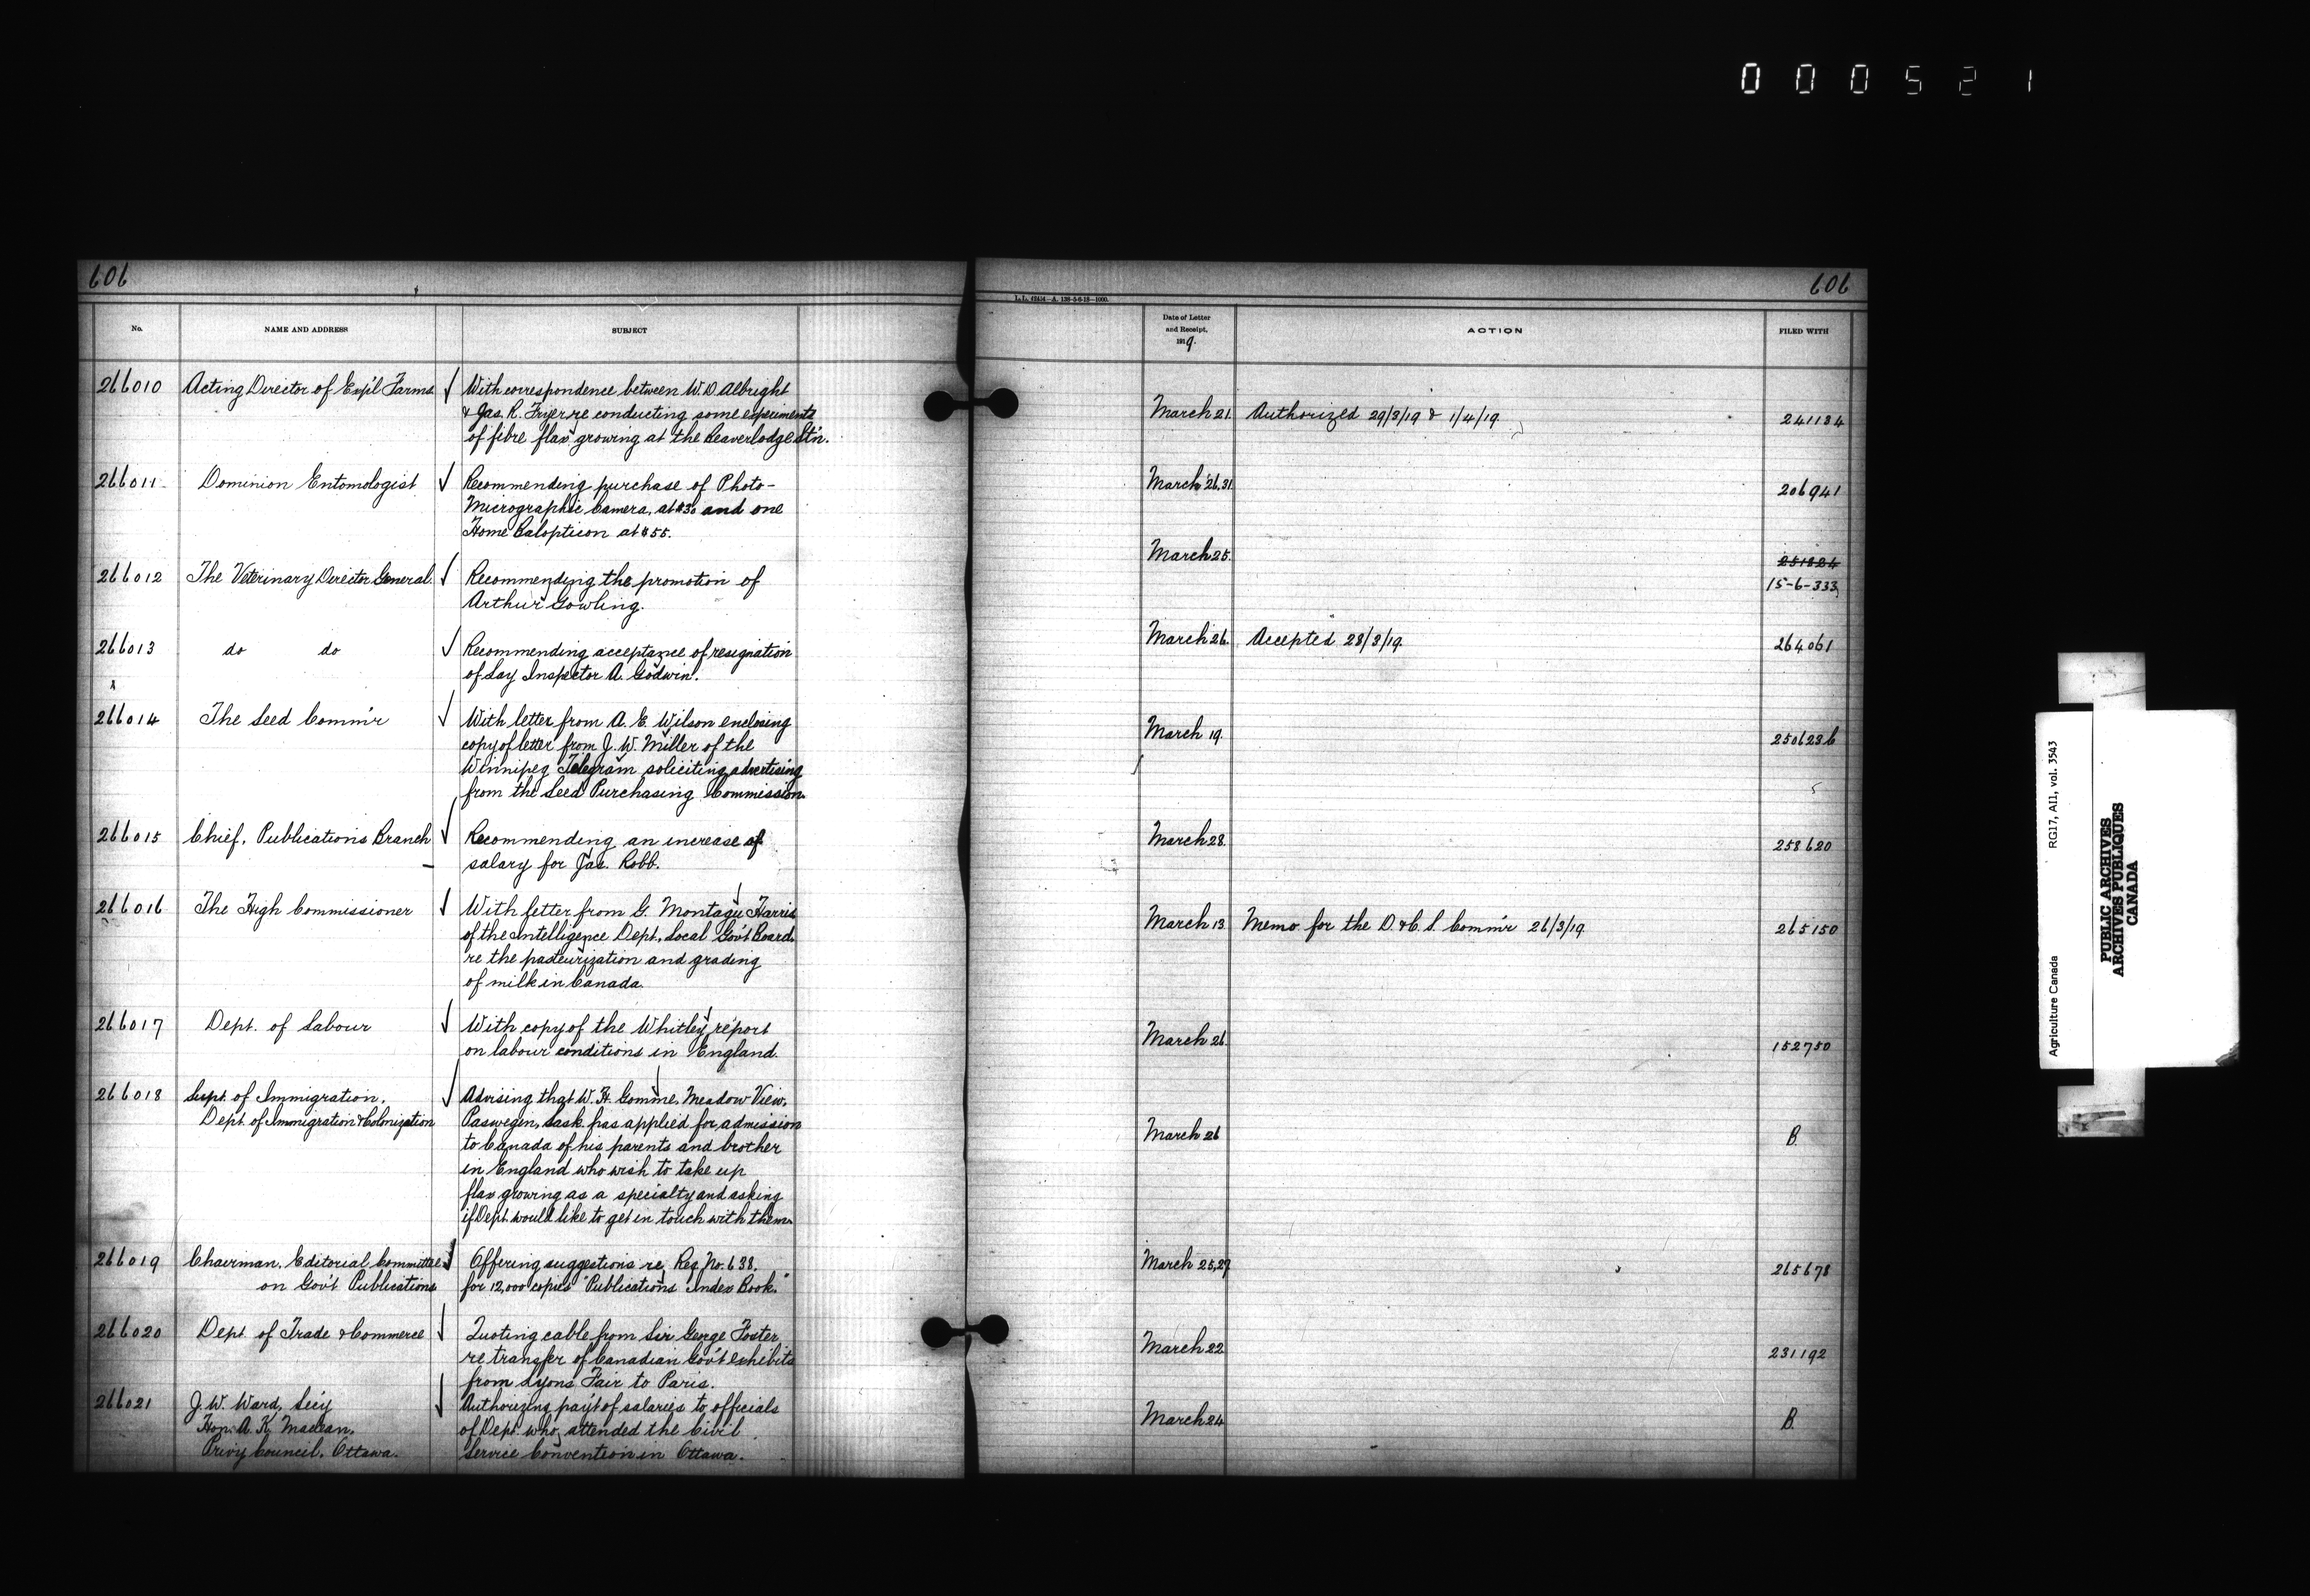 0 0 0 5 2 1
606
606
L.L. 62434—A. 138-5-6-18—1000.
No.
NAME AND ADDRESS
SUBJECT
Date of Letter
and Receipt,
1919.
ACTION
FILED WITH
266010 Acting Director of Exp'l Farms With correspondence between W.D. Albright
& Jas. R. Fryer re conducting some experiments
of fibre flax growing at the Beaverlodge Stn.
March 21. Authorized 29/3/19 & 1/4/19. 241134
266011 Dominion Entomologist Recommending purchase of Photo-
Micrographic Camera, at $30 and one
Home Balopticon at $55.
March 26,31 206941
266012 The Veterinary Director General Recommending the promotion of
Arthur Gowling.
March 25. 251824
15-6-333
266013 do do Recommending acceptance of resignation
of Lay Inspector A. Godwin.
March 26. Accepted 28/3/19. 264061
x
266014 The Seed Comm'r With letter from A. E. Wilson enclosing
copy of letter from J. W. Miller of the
Winnipeg Telegram soliciting advertising
from the Seed Purchasing Commission.
March 19. 250623b
266015 Chief, Publications Branch Recommending an increase of
salary for Jas. Robb.
March 28. 258620
266016 The High Commissioner With letter from G. Montagu Harris
of the Intelligence Dept., Local Gov't Board,
re the pasteurization and grading
of milk in Canada.
March 13. Memo. for the D. & C. S. Comm'r 26/3/19 265150
266017 Dept. of Labour With copy of the Whitley report
on labour conditions in England.
March 26. 152750
266018 Supt. of Immigration,
Dept. of Immigration & Colonization
Advising that W. H. Gomme, Meadow View,
Paswegin, Sask. has applied for admission
to Canada of his parents and brother
in England who wish to take up
flax growing as a specialty and asking
if Dept. would like to get in touch with them.
March 26 B.
266019 Chairman, Editorial Committee
on Gov't Publications
Offering suggestions re Req. No. 638,
for 12,000 copies "Publications Index Book."
March 25,27 265678
266020 Dept. of Trade & Commerce Quoting cable from Sir George Foster
re transfer of Canadian Gov't exhibits
from Lyons Fair to Paris.
March 22 231192
266021 J. W. Ward, Sec'y
Hon. A. K. Maclean,
Privy Council, Ottawa.
Authorizing pay't of salaries to officials
of Dept. who attended the Civil
Service Convention in Ottawa.
March 24 B.
Agriculture Canada RG17, AII, vol. 3543
PUBLIC ARCHIVES
ARCHIVES PUBLIQUES
CANADA